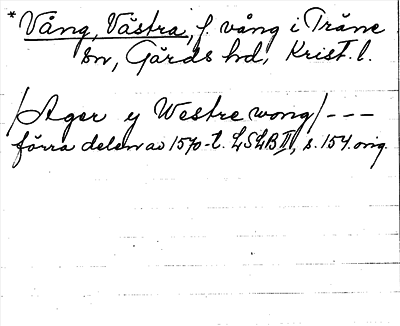 *Vång, Västra, f. vång i Träne
sn, Gärds hd, Krist. l.
/Ager y Westre wong/ ---
förra delen av 1570-t. LSLB II, s. 154. orig.